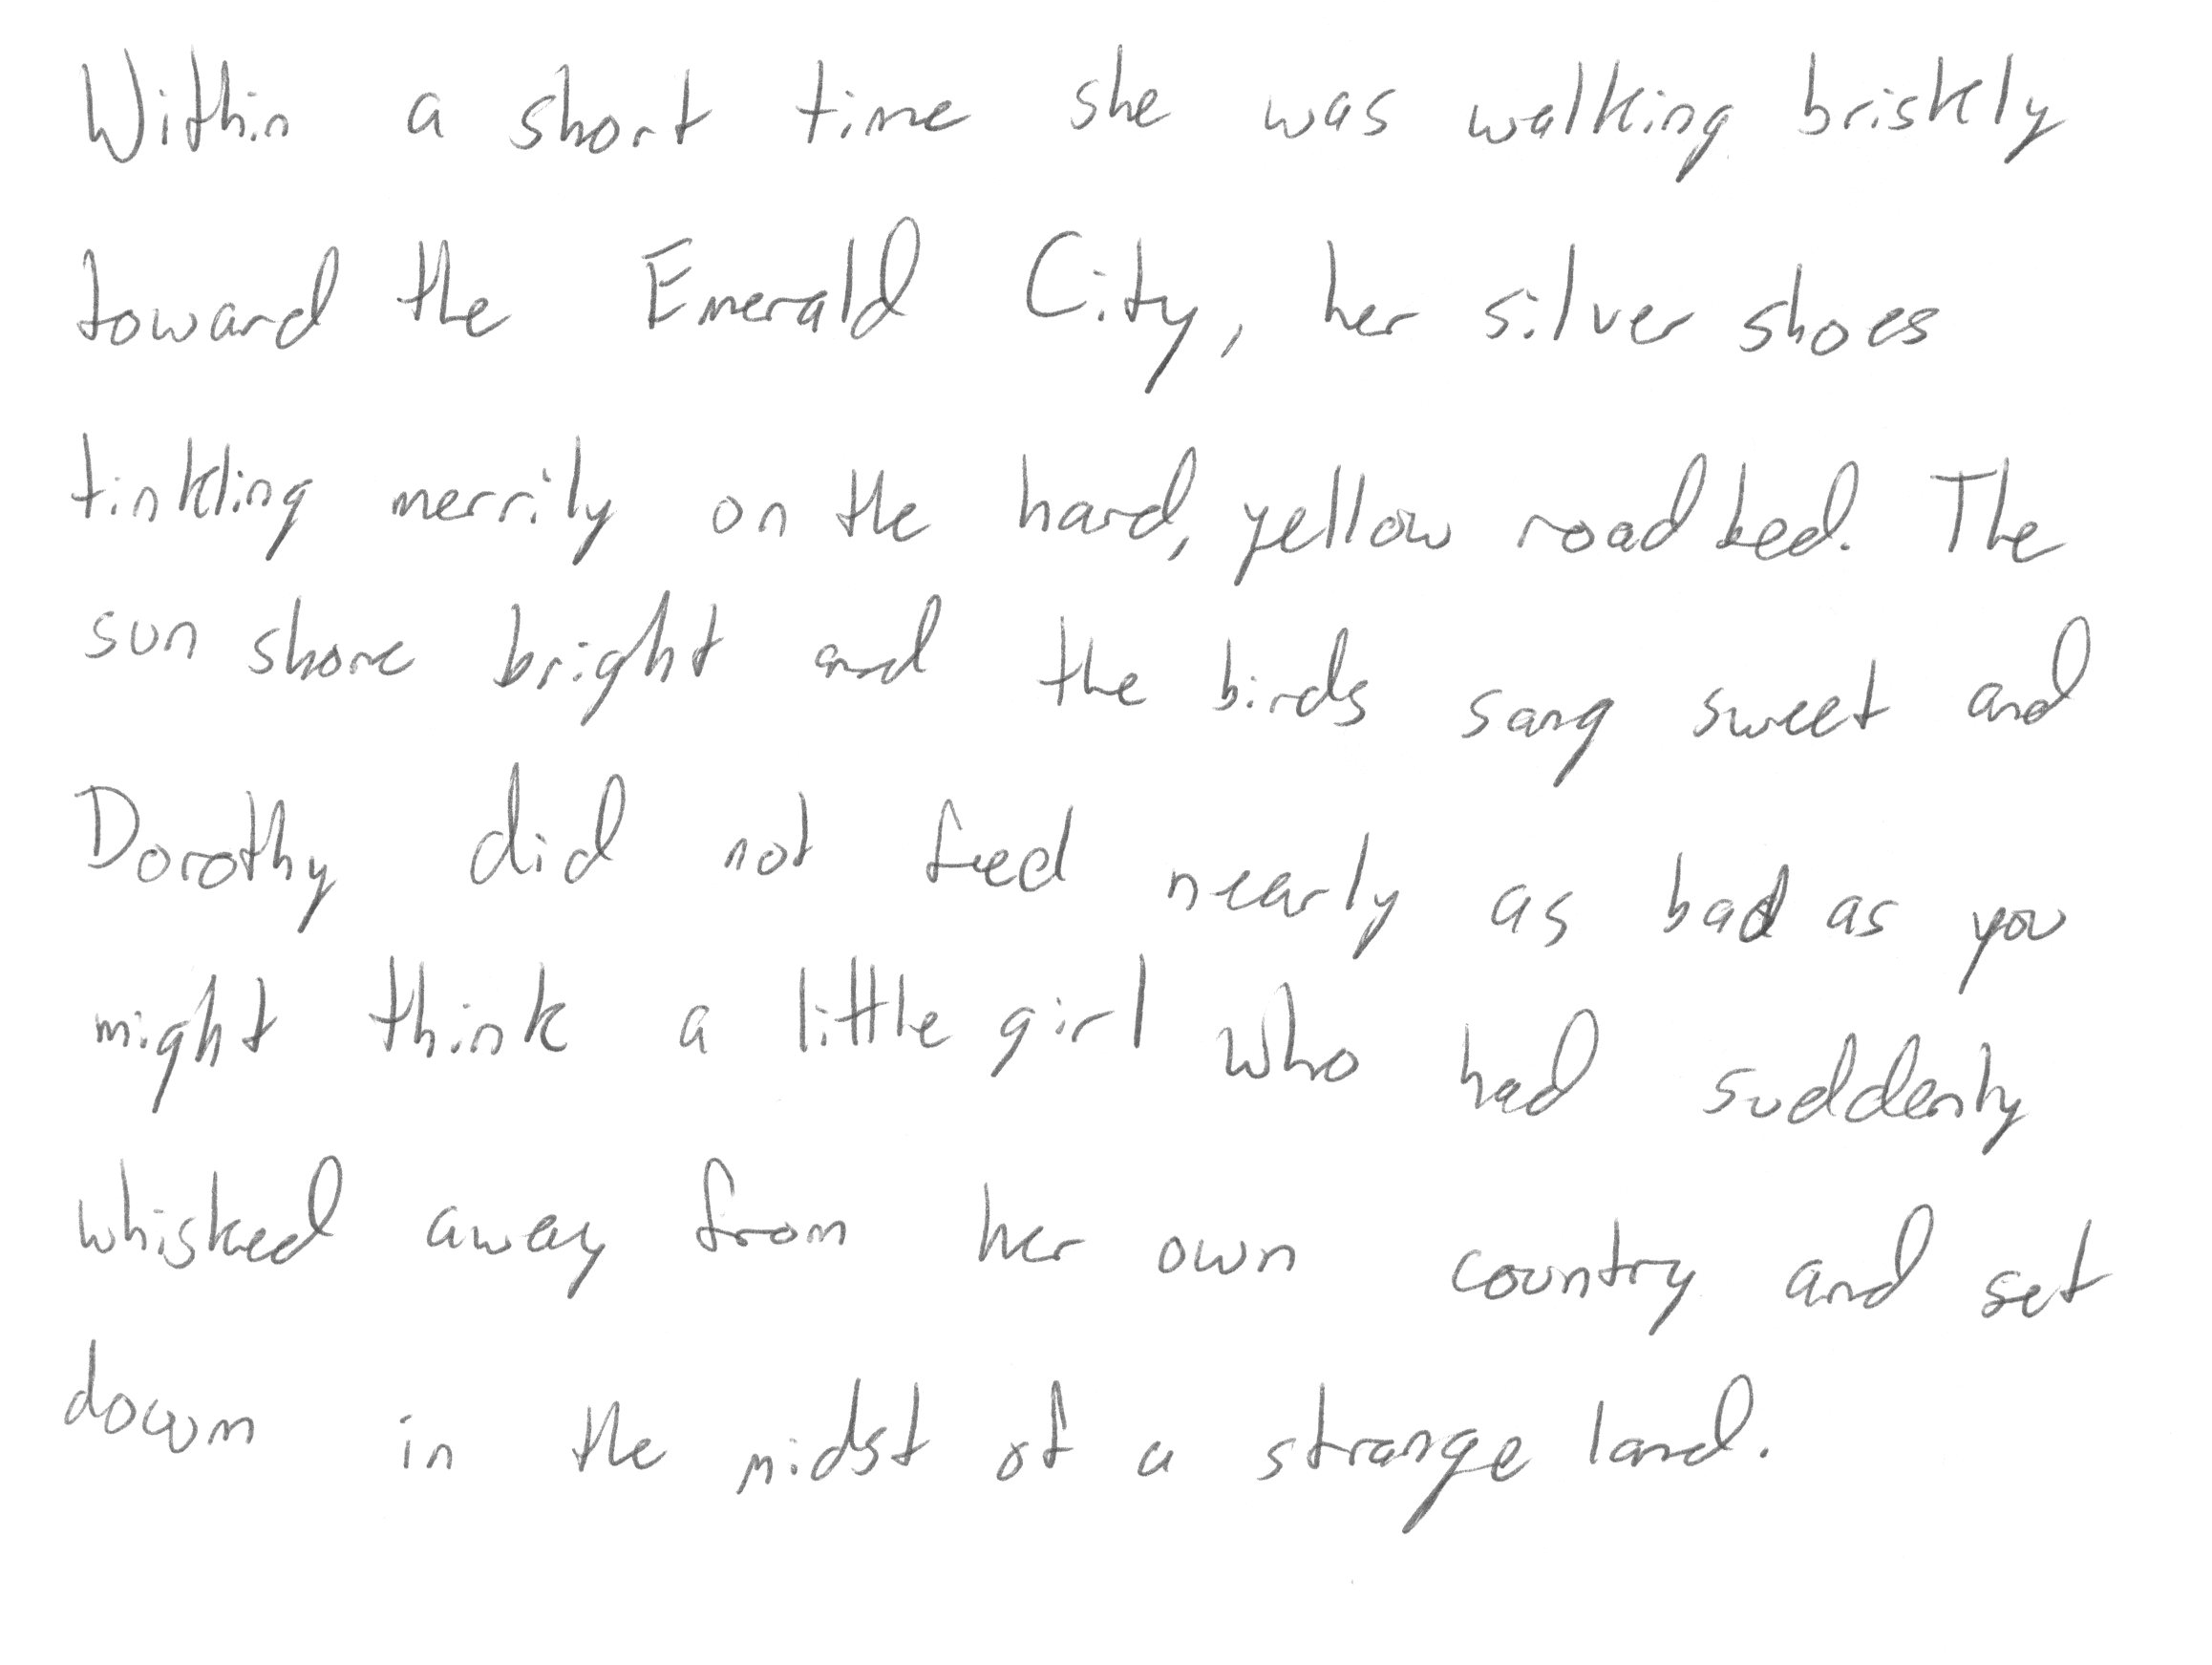 Within a short time she was walking briskly
toward the Emerald City, her silver shoes
tinkling merrily on the hard, yellow roadbed. The
sun shone bright and the birds sang sweet and
Dorothy did not feel nearly as bad as you
might think a little girl who had suddenly
whisked away from her own country and set
down in the midst of a strange land.